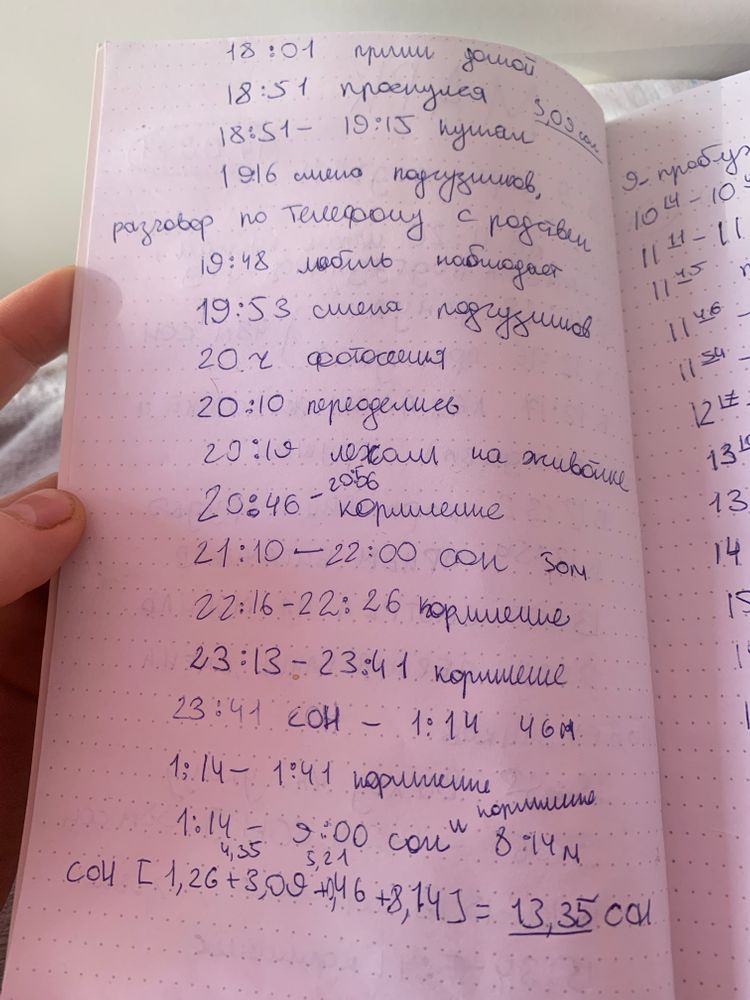 18:01 пришли домой
18:51 проснулся
3,09 сон
18:51 - 19:15 кушал
19 16 смена подгузников,
разговор по телефону с родствен
19:48 мобиль наблюдает
19:53 смена подгузников
20 ч фотосессия
20:10 переоделись
20:19 лежали на животике
20:46 - 20:56 кормление
21:10 — 22:00 сон 50м
22:16 - 22:26 кормление
23:13 - 23:41 кормление
23:41 сон - 1:14 46м
1:14 - 1:41 кормление
1:14 - 9:00 сон и кормление 8:14м
4,35 5,21
сон [1,26 + 3,09 + 0,46 + 8,14] = 13,35 сон
9 - пробуж
10 14 - 10
11 11 - 11
11 45
11 46 -
11 54 -
12 17
13 19
13
14
15